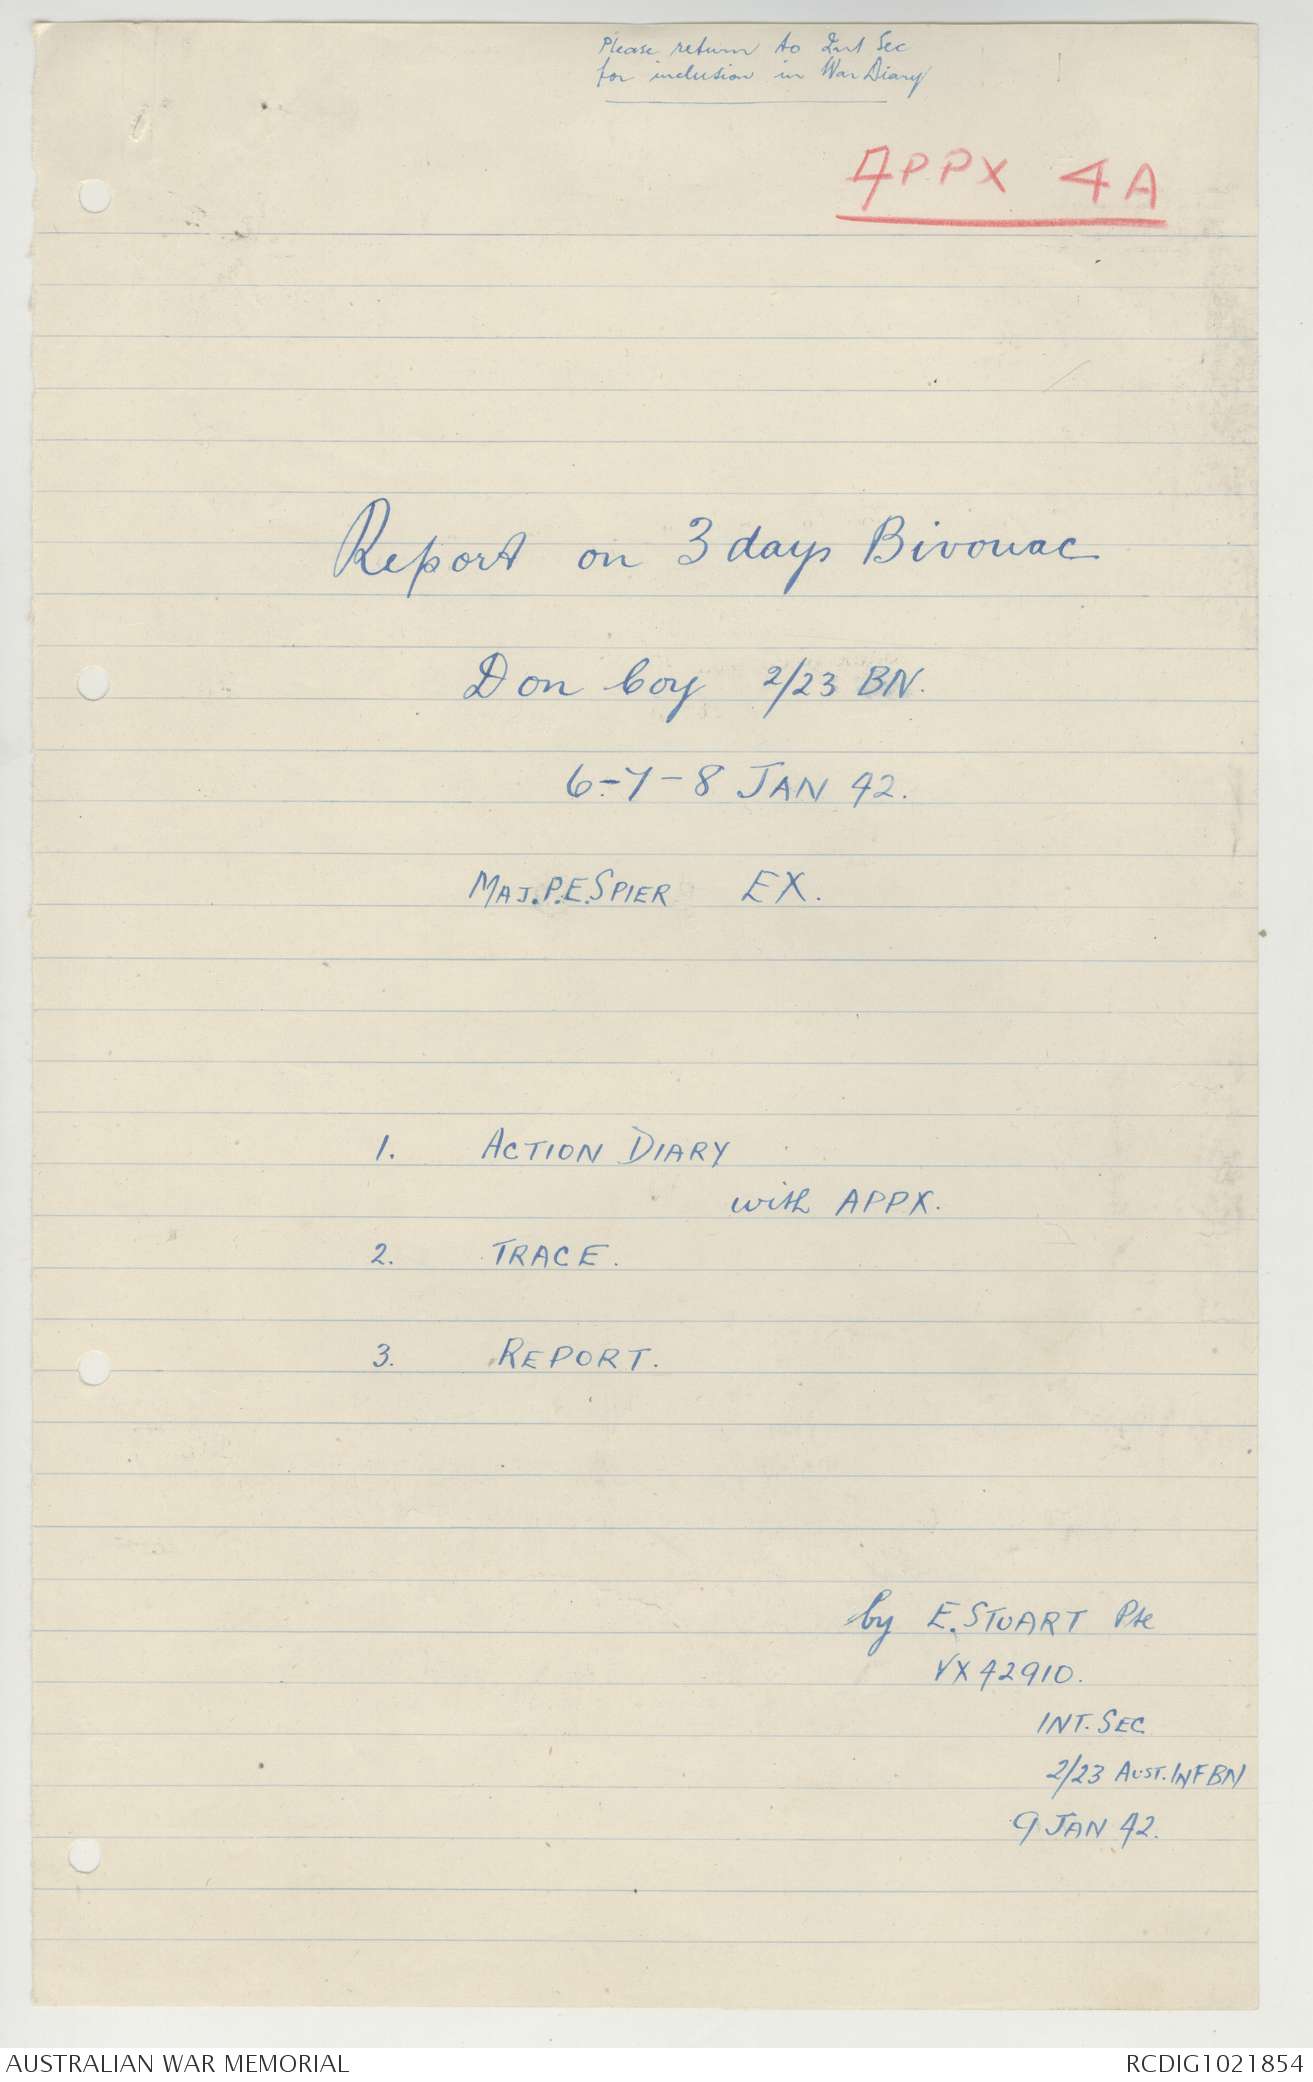 Please return to Int Sec
for inclusion in War Diary
APPX 4A
Report on 3 days Bivouac
Don Coy 2/23 BN.
6-7-8 JAN 42.
MAJ. P.E. SPIER EX.
1. ACTION DIARY
with APPX.
2. TRACE.
3. REPORT.
by E. STUART Pte
VX 42910.
INT. SEC
2/23 AUST. INF BN
9 JAN 42.
AUSTRALIAN WAR MEMORIAL
RCDIG1021854